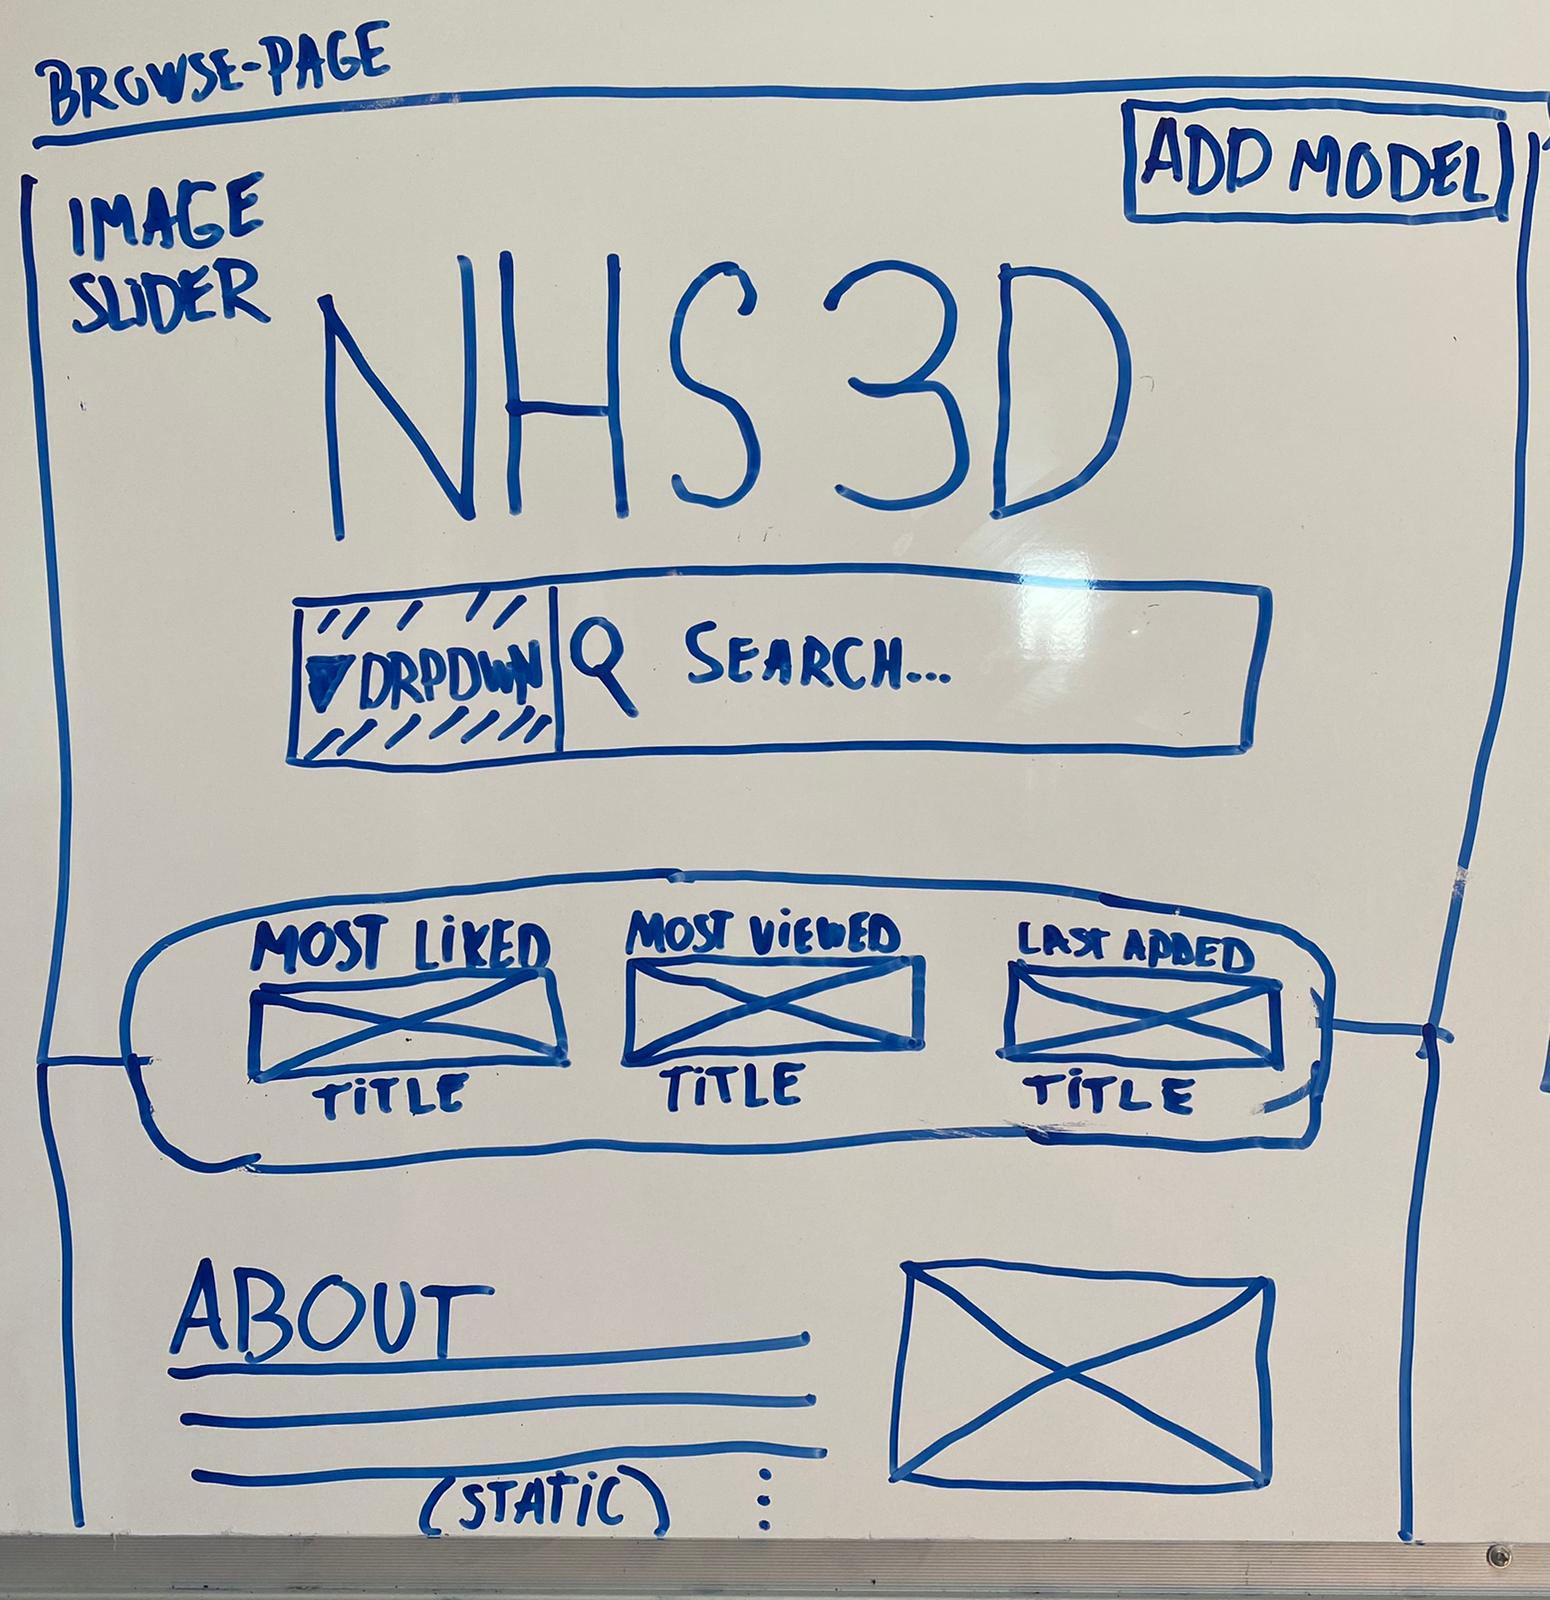 BROWSE-PAGE
ADD MODEL
IMAGE
SLIDER
NHS 3D
DRPDWN
SEARCH...
MOST LIKED
MOST VIEWED
LAST ADDED
TITLE
TITLE
TITLE
ABOUT
(STATIC)